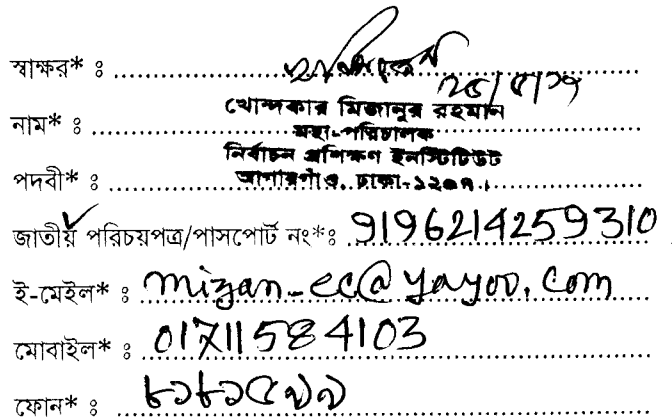 স্বাক্ষর* ঃ
নাম* ঃ খোন্দকার মিজানুর রহমান
মহা-পরিচালক
নির্বাচন প্রশিক্ষণ ইনস্টিটিউট
পদবী* ঃ আগারগাঁও, ঢাকা-১২০৭।
জাতীয় পরিচয়পত্র/পাসপোর্ট নং*ঃ 9196214259310
ই-মেইল* ঃ mizan_ec@yayoo.com
মোবাইল* ঃ 01711584103
ফোন* ঃ ৮১৮১৫৯৯